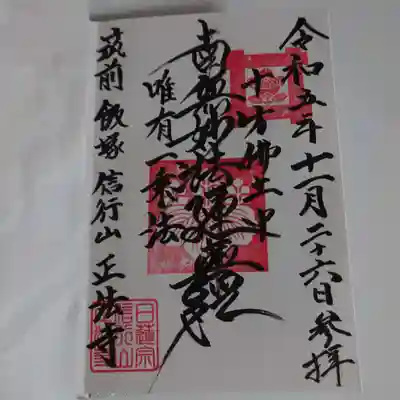 令和五年十一月二十六日参拝
十方佛土中
南無妙法蓮華経
唯有一乗法
筑前 飯塚 信行山 正法寺
日蓮宗
信行山
正法寺